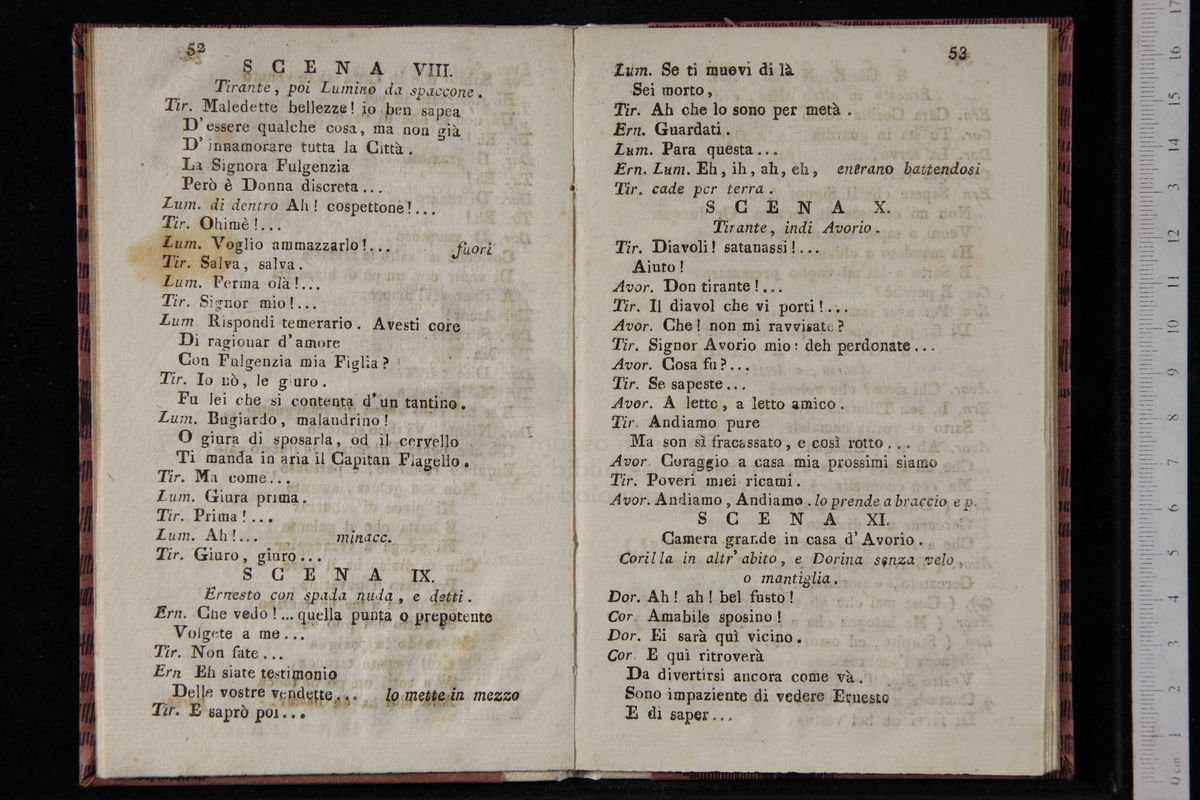 52
SCENA VIII.
Tirante, poi Lumino da spaccone.
Tir. Maledette bellezze! io ben sapea
D'essere qualche cosa, ma non già
D'innamorare tutta la Città.
La Signora Fulgenzia
Però è Donna discreta...
Lum. di dentro Ah! cospettone!...
Tir. Ohimè!...
Lum. Voglio ammazzarlo!... fuori
Tir. Salva, salva.
Lum. Ferma olà!...
Tir. Signor mio!...
Lum Rispondi temerario. Avesti core
Di ragionar d'amore
Con Fulgenzia mia Figlia?
Tir. Io nò, le giuro.
Fu lei che si contenta d'un tantino.
Lum. Bugiardo, malandrino!
O giura di sposarla, od il cervello
Ti manda in aria il Capitan Flagello.
Tir. Ma come...
Lum. Giura prima.
Tir. Prima!...
Lum. Ah!... minacc.
Tir. Giuro, giuro...
SCENA IX.
Ernesto con spada nuda, e detti.
Ern. Che vedo!... quella punta o prepotente
Volgete a me...
Tir. Non fate...
Ern Eh siate testimonio
Delle vostre vendette... lo mette in mezzo
Tir. E saprò poi...
53
Lum. Se ti muovi di là
Sei morto,
Tir. Ah che lo sono per metà.
Ern. Guardati.
Lum. Para questa...
Ern. Lum. Eh, ih, ah, eh, entrano battendosi
Tir. cade per terra.
SCENA X.
Tirante, indi Avorio.
Tir. Diavoli! satanassi!...
Aiuto!
Avor. Don tirante!...
Tir. Il diavol che vi porti!...
Avor. Che! non mi ravvisate?
Tir. Signor Avorio mio: deh perdonate...
Avor. Cosa fu?...
Tir. Se sapeste...
Avor. A letto, a letto amico.
Tir. Andiamo pure
Ma son sì fracassato, e così rotto...
Avor. Coraggio a casa mia prossimi siamo
Tir. Poveri miei ricami.
Avor. Andiamo, Andiamo. lo prende a braccio e p.
SCENA XI.
Camera grande in casa d'Avorio.
Corilla in altr' abito, e Dorina senza velo,
o mantiglia.
Dor. Ah! ah! bel fusto!
Cor. Amabile sposino!
Dor. Ei sarà quì vicino.
Cor. E quì ritroverà
Da divertirsi ancora come và.
Sono impaziente di vedere Ernesto
E di saper...